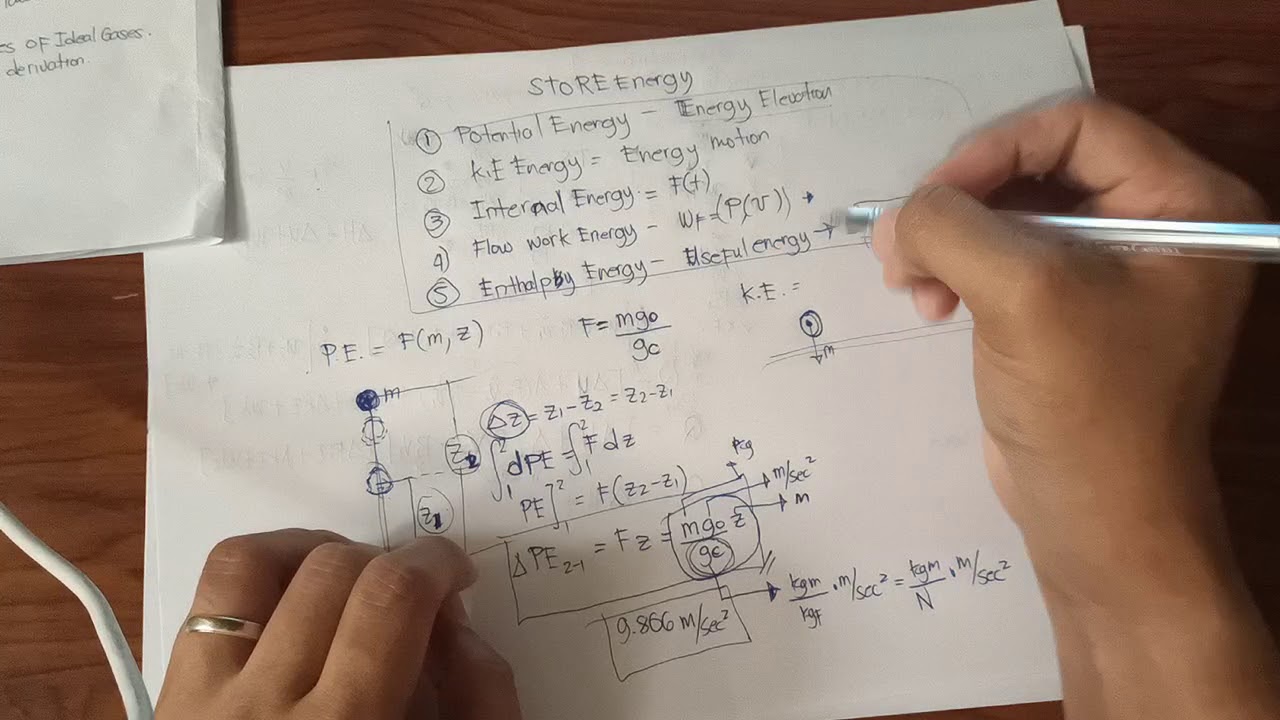 es OF Ideal Gases.
derivation.
STORE Energy
① Potential Energy - Energy Elevation
② K.E Energy = Energy motion
③ Internal Energy = F(t)
4) Flow work Energy - WF = (P(V))
⑤ Enthalpy Energy - Useful energy →
K.E. =
m
P.E. = F(m, z)
F = mg0/gc
m
Z2
Z1
ΔZ = Z1 - Z2 = Z2 - Z1
∫₁² dPE = ∫₁² F dz
PE]₁² = F(Z2-Z1)
ΔPE2-1 = Fz = mg0 z/gc
m/sec²
m
kgm/kgf · m/sec² = kgm/N · m/sec²
9.866 m/sec²